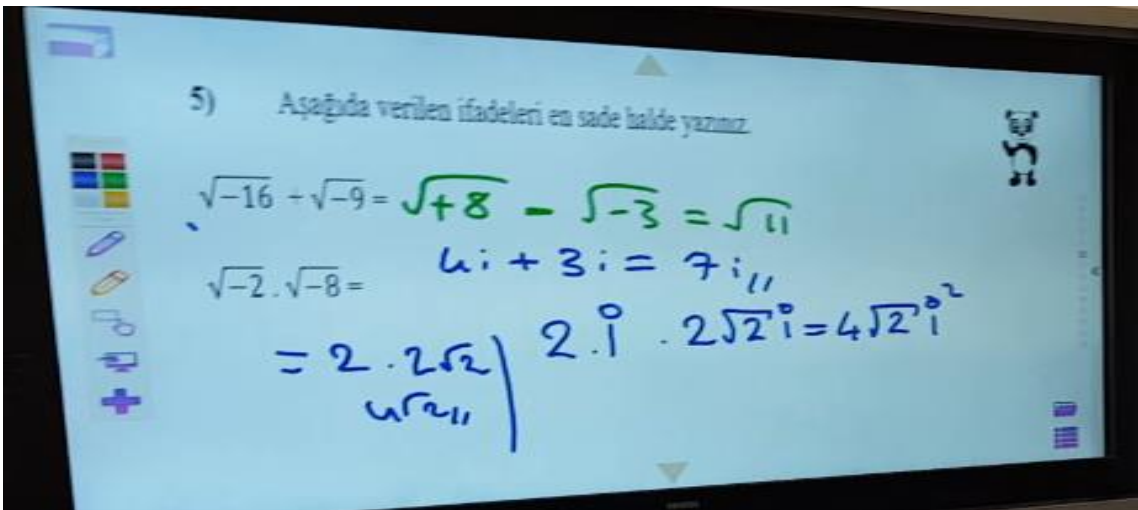 5) Aşağıda verilen ifadeleri en sade halde yazınız.
√-16 + √-9 = √+8 - √-3 = √11
4i + 3i = 7i //
√-2 . √-8 =
= 2 . 2√2 | 2.i . 2√2 i = 4√2 i²
4√2 //